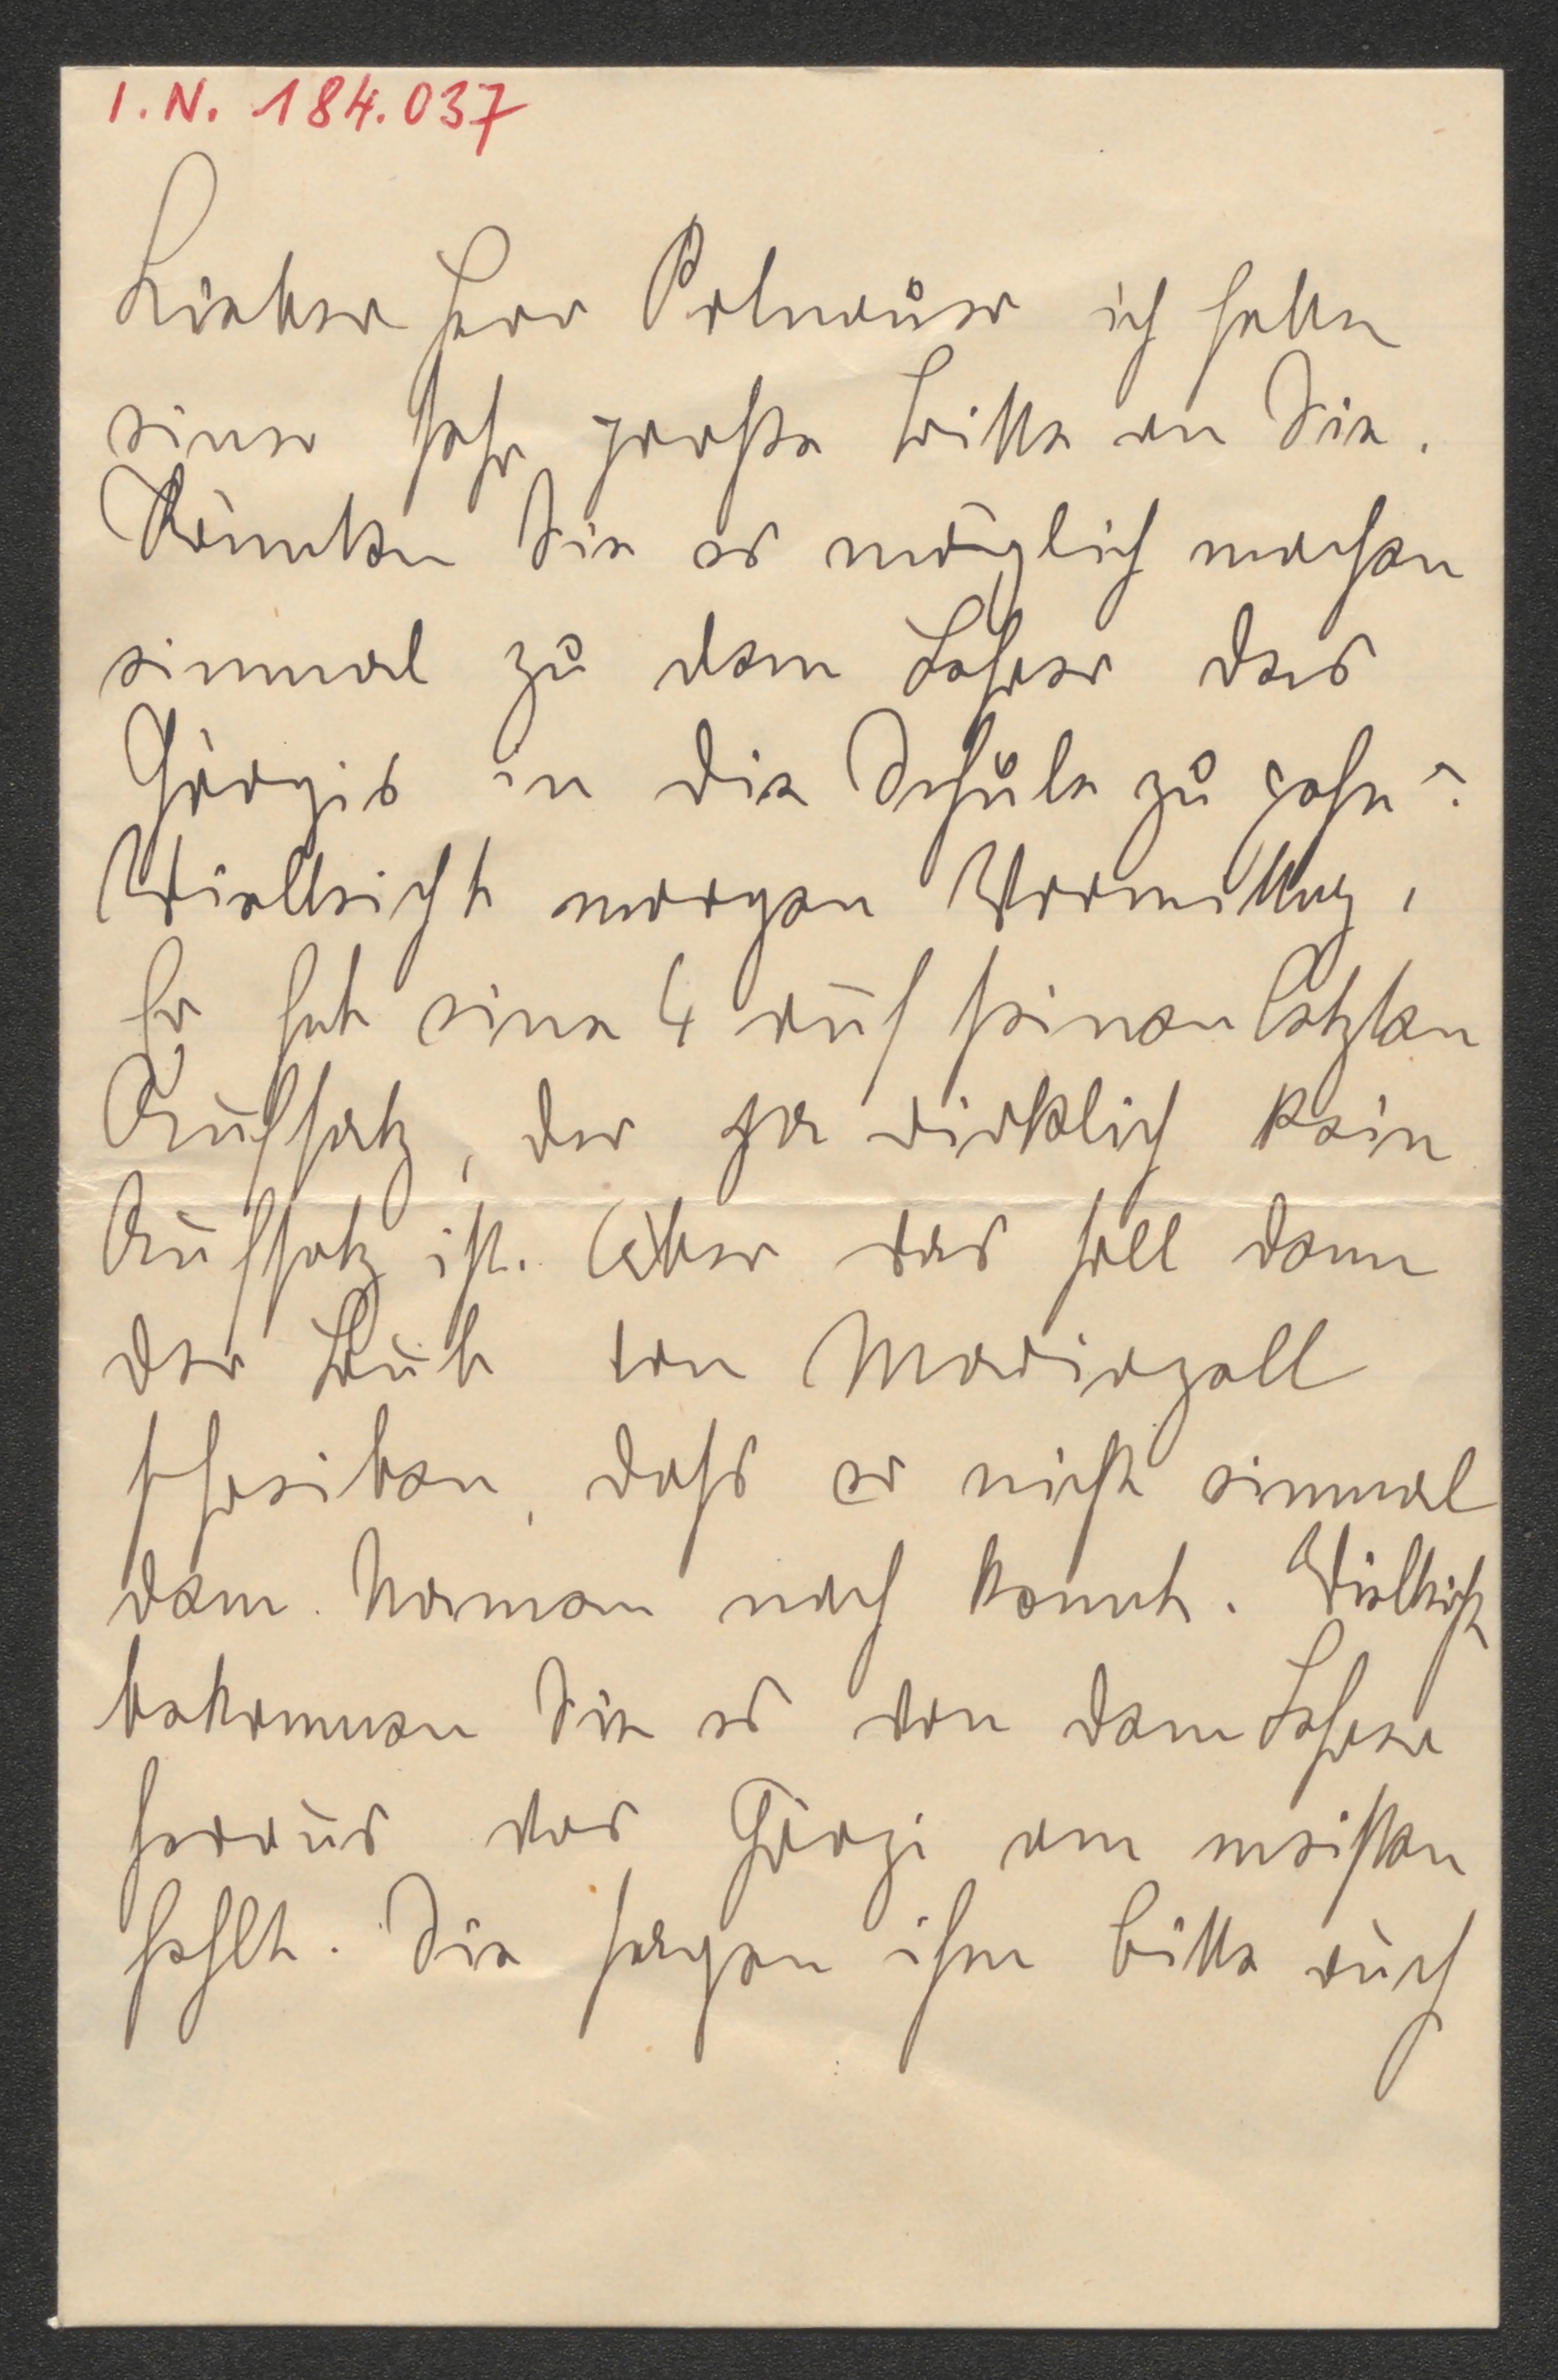 I.N. 184.037
Lieber Herr Polnauer ich hätte
einer sehr große Bitte an Sie.
Könnten Sie es möglich machen
einmal zu dem Lehrer des
Görgis in die Schule zu gehn?
Vielleicht morgen Vormittag,
Er hat eine 4 auf seinen letzten
Aufsatz, der ja wirklich kein
Aufsatz ist. Aber was soll denn
der Bub von Mariazell
schreiben, dass er nicht einmal
dem Namen nach kennt. Vielleicht
bekommen Sie es von dem Lehrer
heraus was Görgi am meisten
fehlt. Sie sagen ihm bitte auch